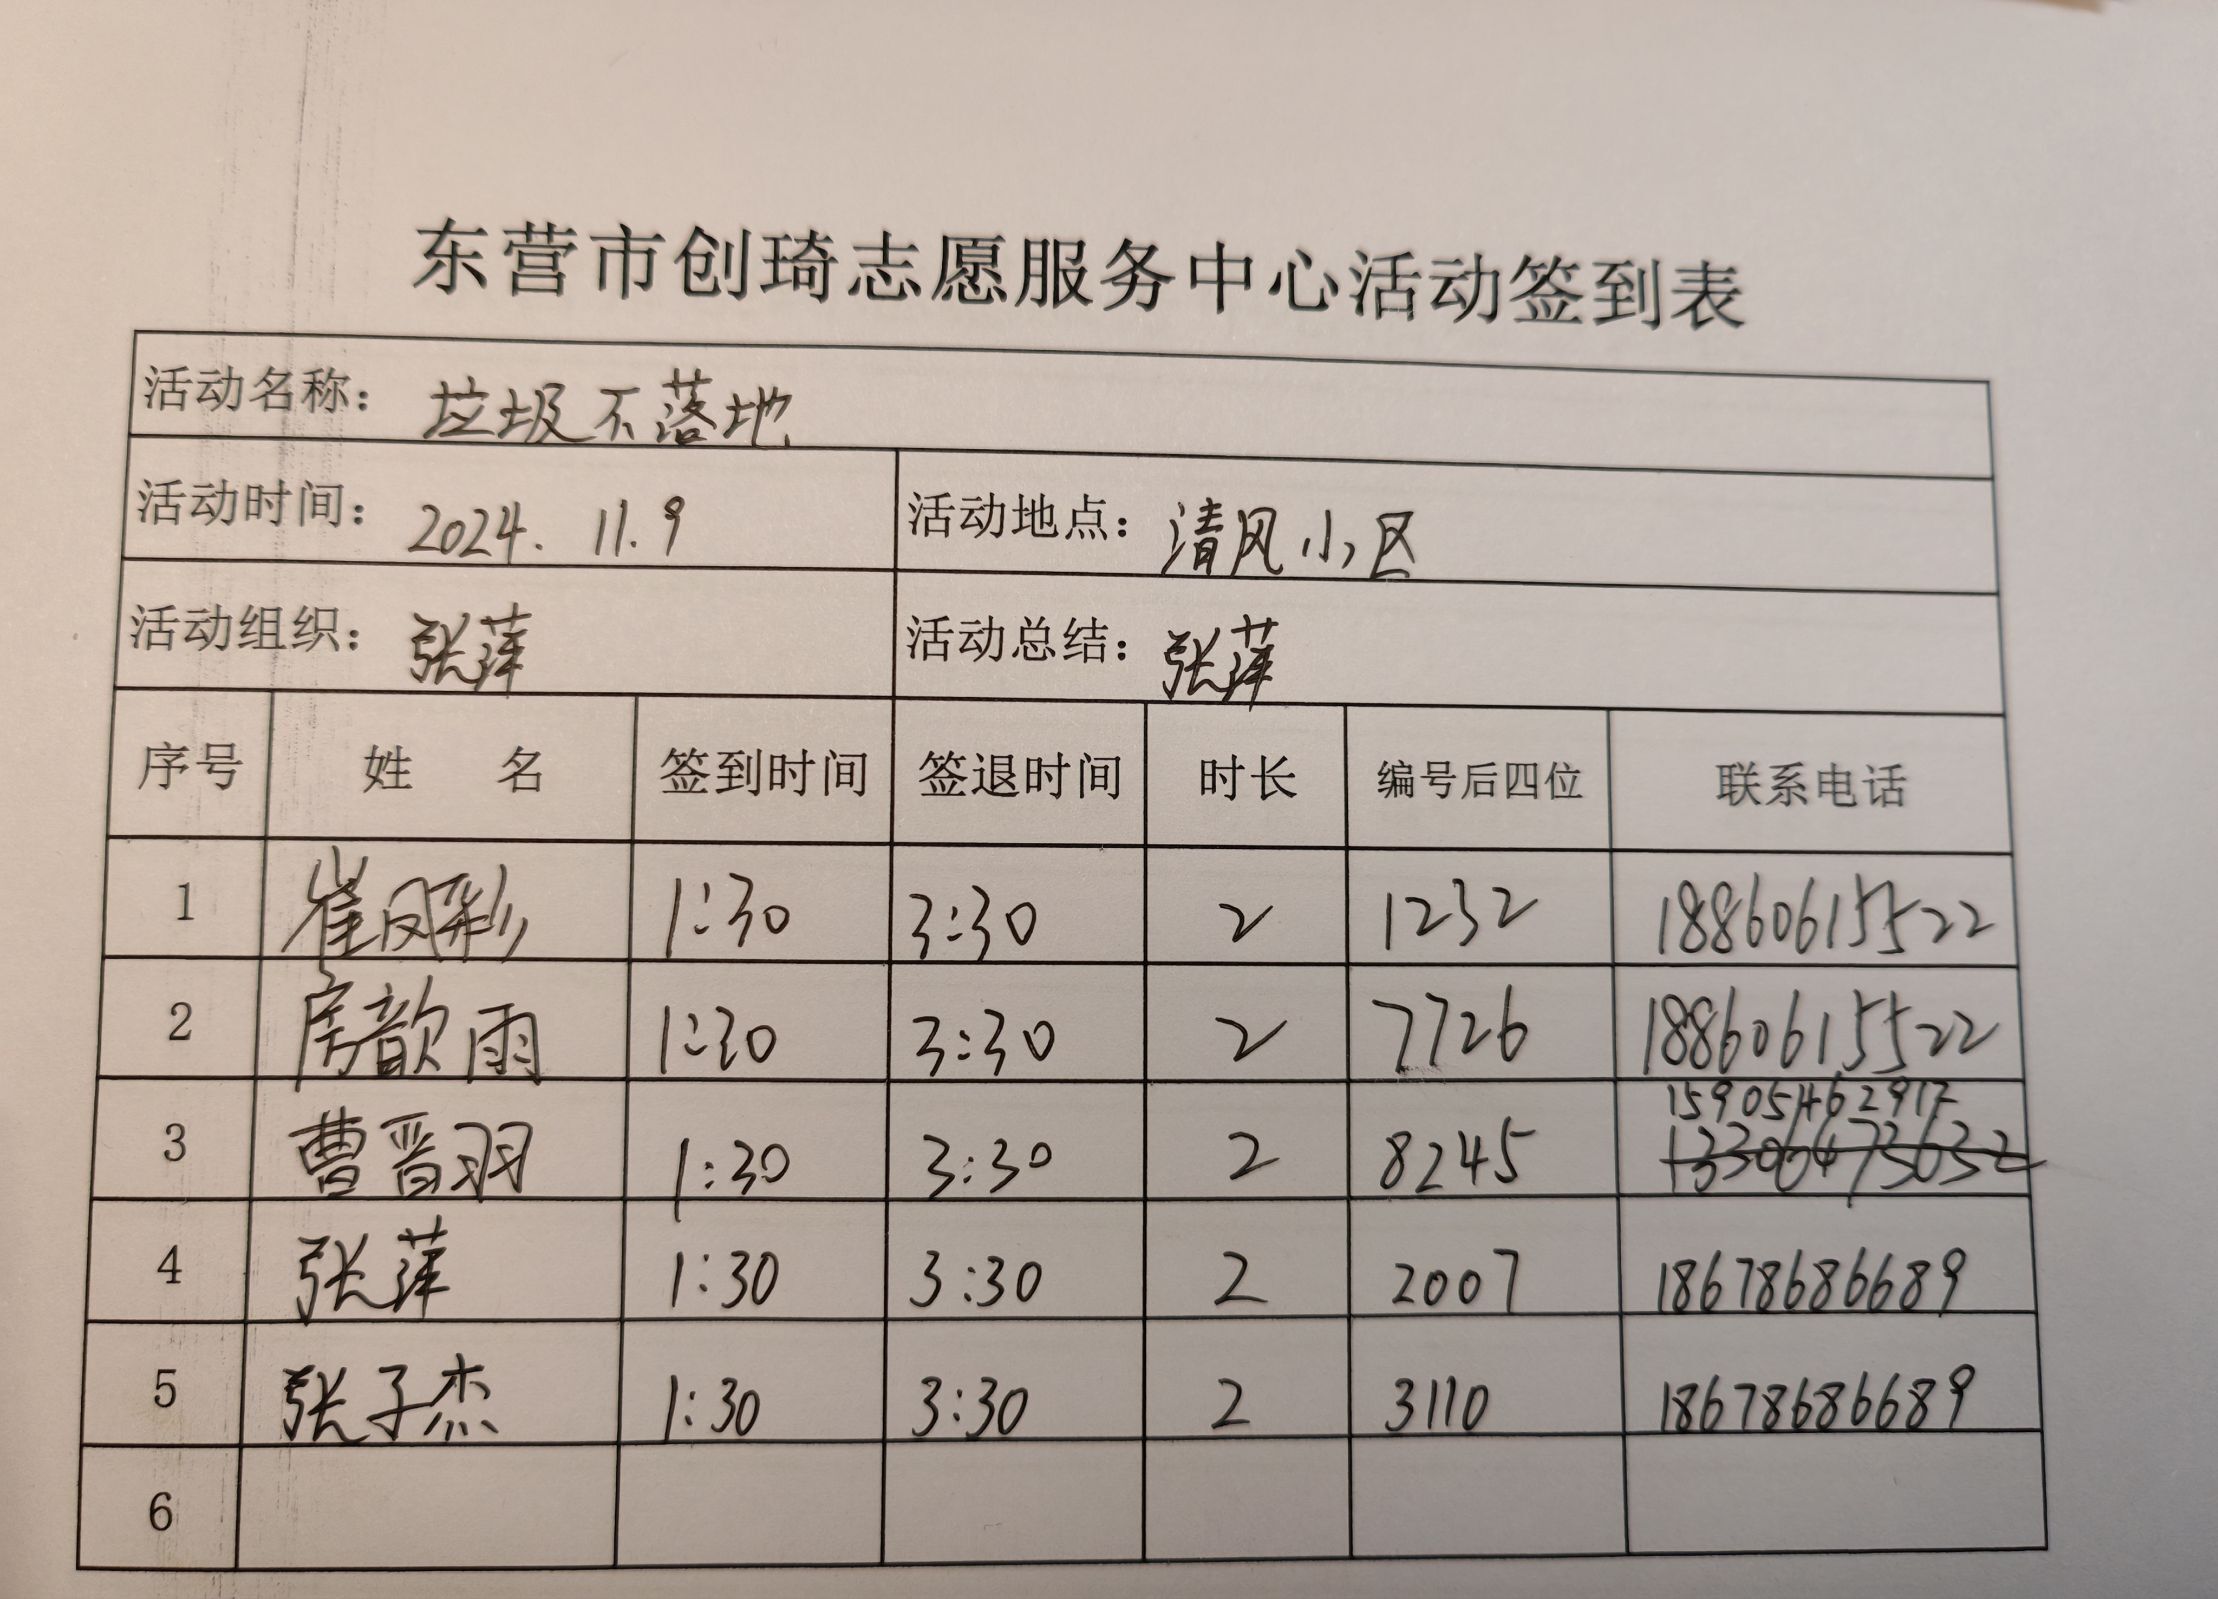 东营市创琦志愿服务中心活动签到表
活动名称： 垃圾不落地
活动时间： 2024. 11.9 活动地点： 清风小区
活动组织： 张萍 活动总结： 张萍
序号 姓 名 签到时间 签退时间 时长 编号后四位 联系电话
1 崔凤彩 1:30 3:30 2 1232 18860615522
2 房歆雨 1:30 3:30 2 7726 18860615522
15905462917
3 曹晋羽 1:30 3:30 2 8245
4 张萍 1:30 3:30 2 2007 18678686689
5 张子杰 1:30 3:30 2 3110 18678686689
6